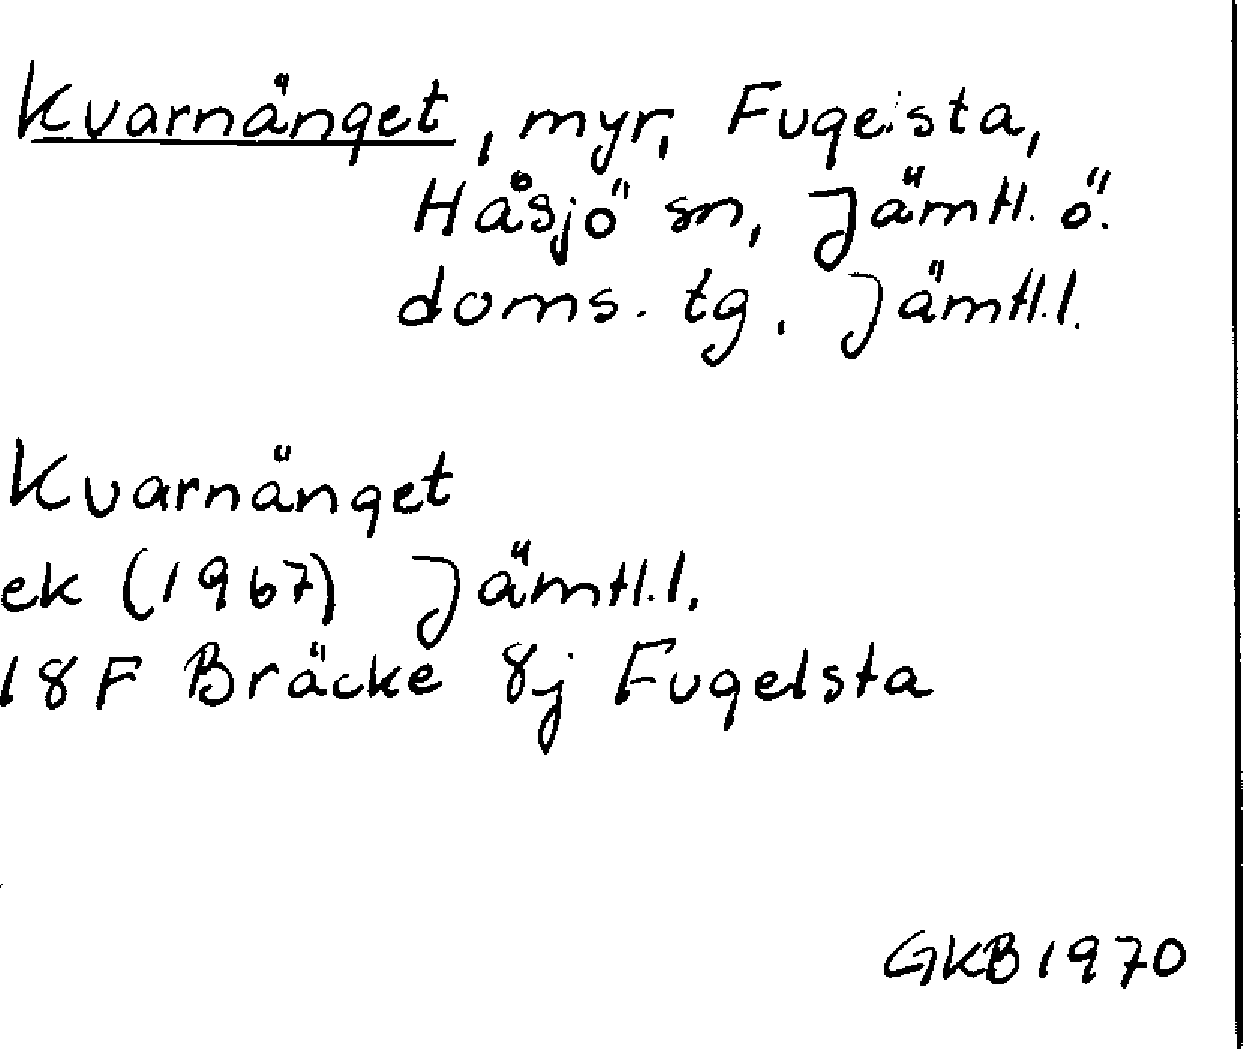 Kvarnänget, myr, Fugelsta,
Håsjö sn, Jämtl. ö.
doms. tg. Jämtl.l.
Kvarnänget
ek (1967) Jämtl.l.
18F Bräcke 8j Fugelsta
GKB 1970